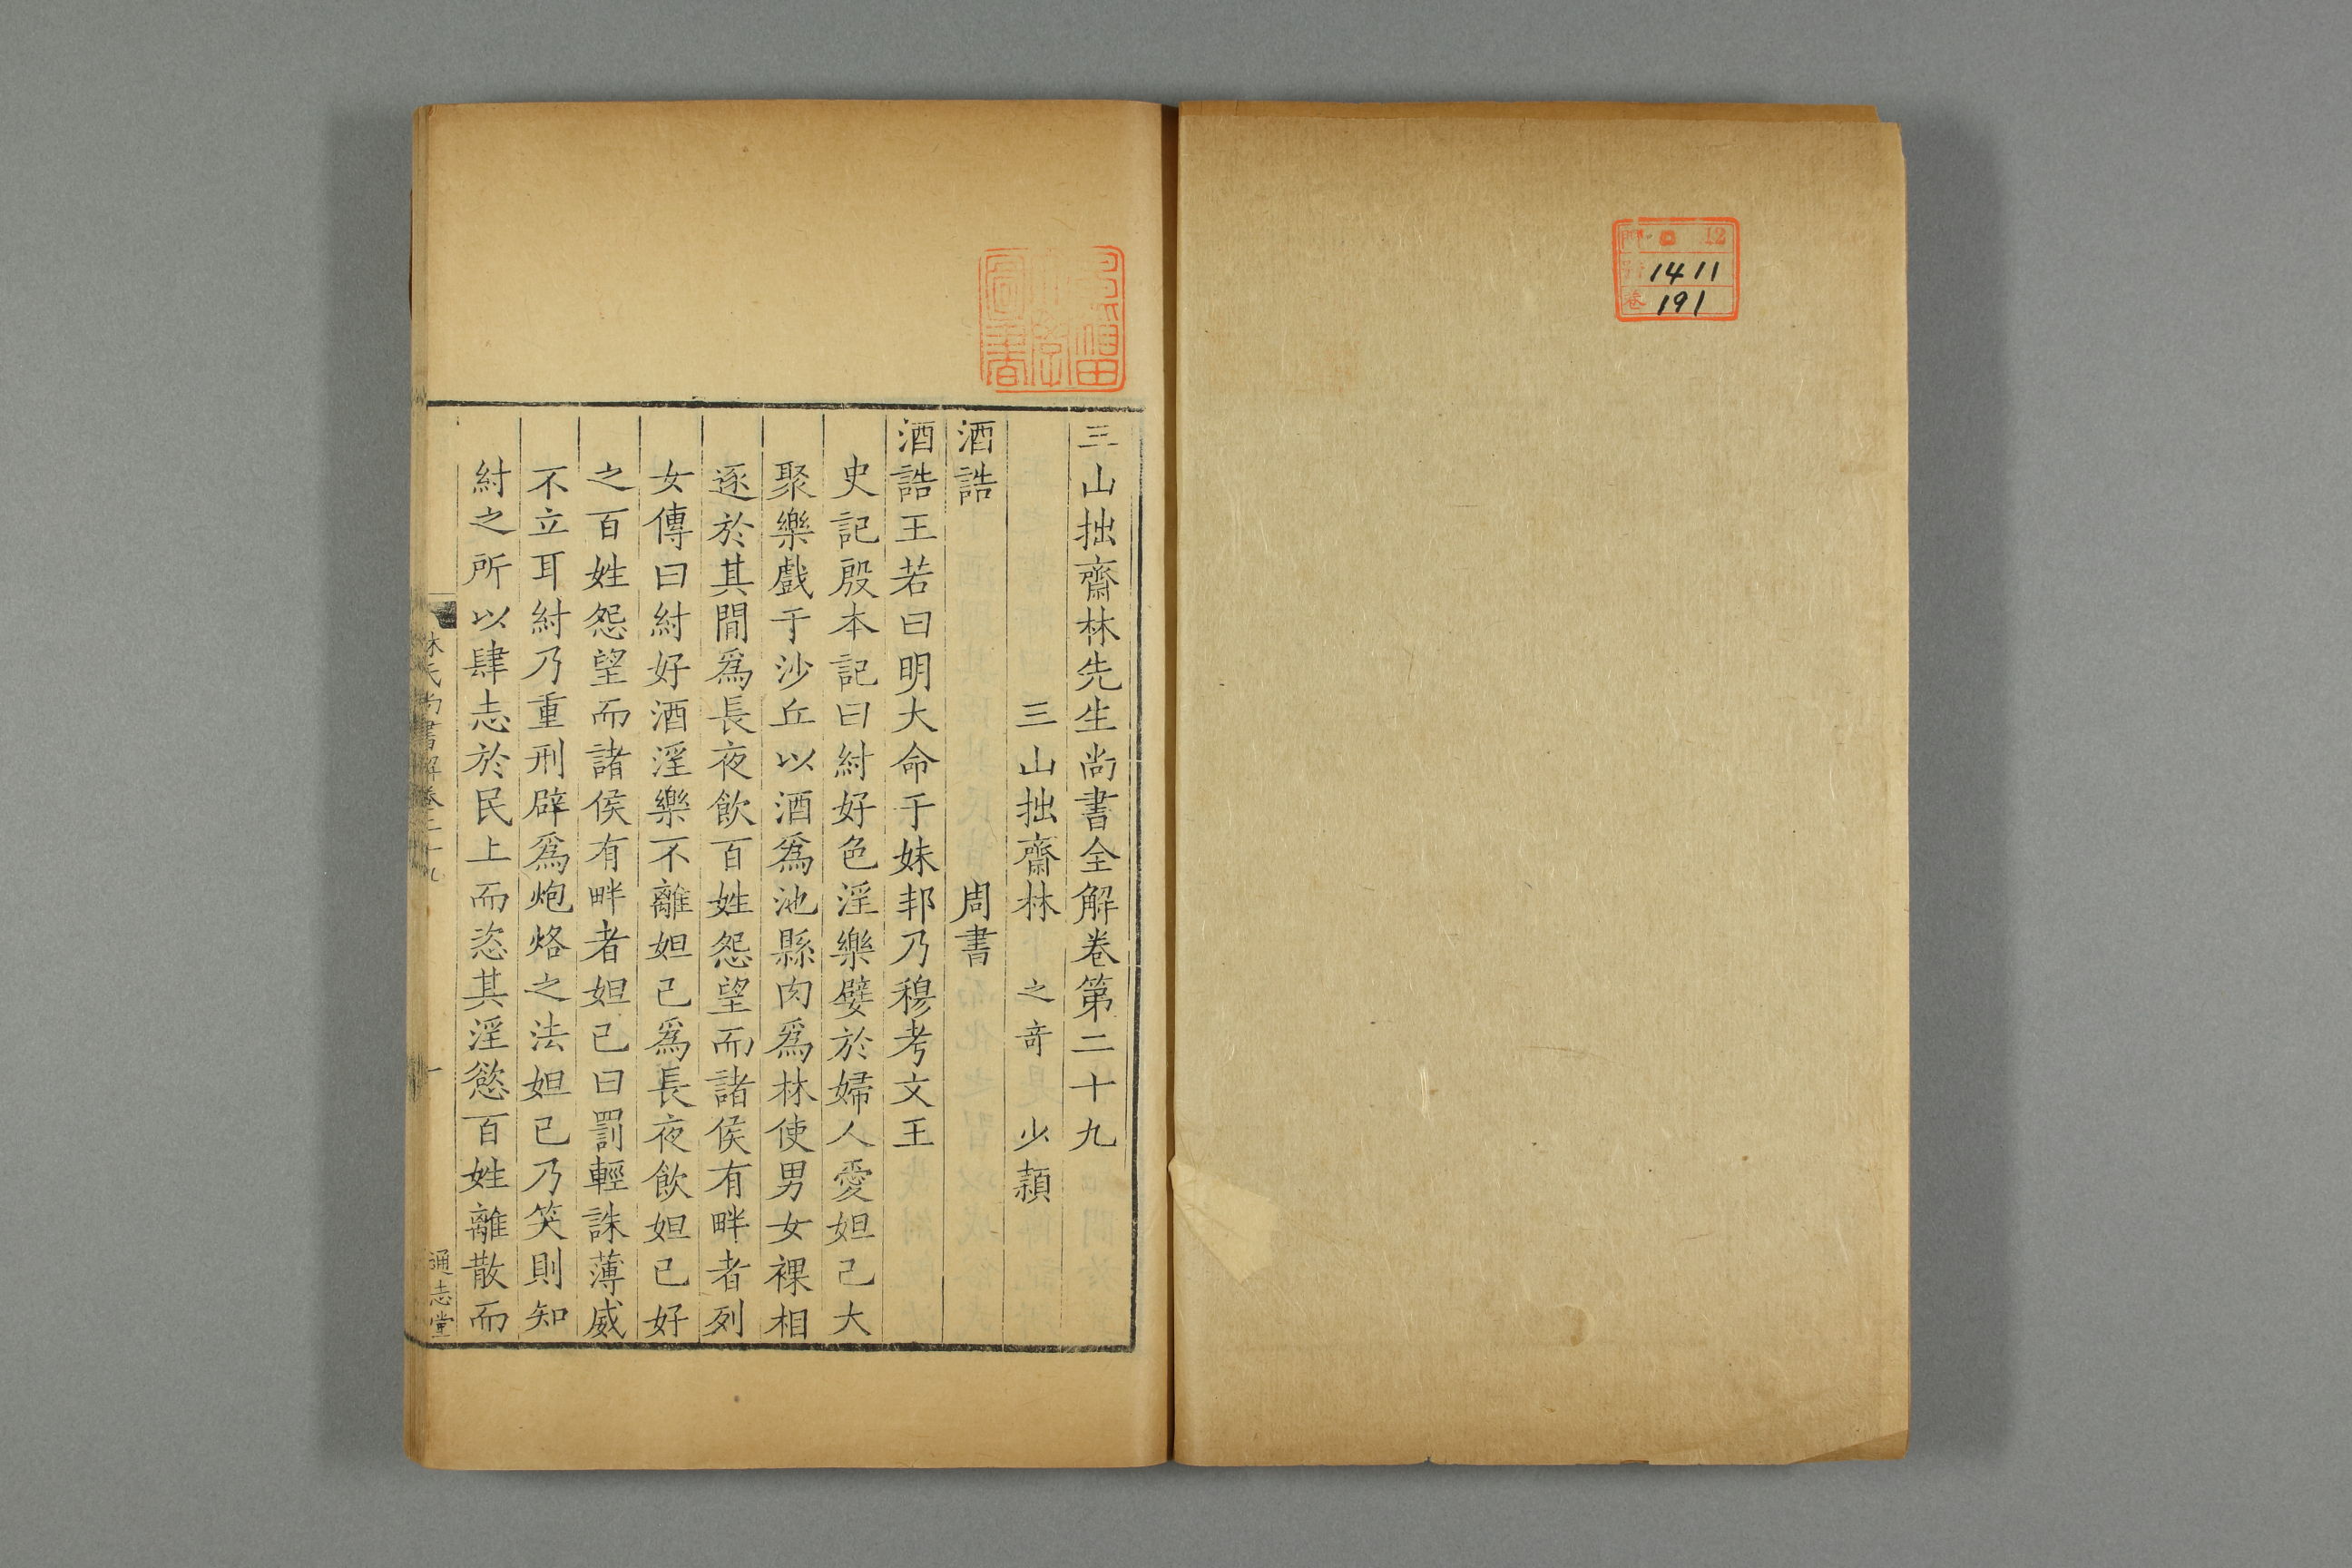 12
1411
卷 191
三山拙齋林先生尚書全解卷第二十九
三山拙齋林 之奇 少穎
酒誥 周書
酒誥王若曰明大命于妹邦乃穆考文王
史記殷本記曰紂好色淫樂嬖於婦人愛妲己大
聚樂戲于沙丘以酒爲池縣肉爲林使男女裸相
逐於其閒爲長夜飲百姓怨望而諸侯有畔者列
女傳曰紂好酒淫樂不離妲己爲長夜飲妲己好
之百姓怨望而諸侯有畔者妲己曰罰輕誅薄威
不立耳紂乃重刑辟爲炮烙之法妲己乃笑則知
紂之所以肆志於民上而恣其淫慾百姓離散而
林氏尚書解卷二十九 一 通志堂